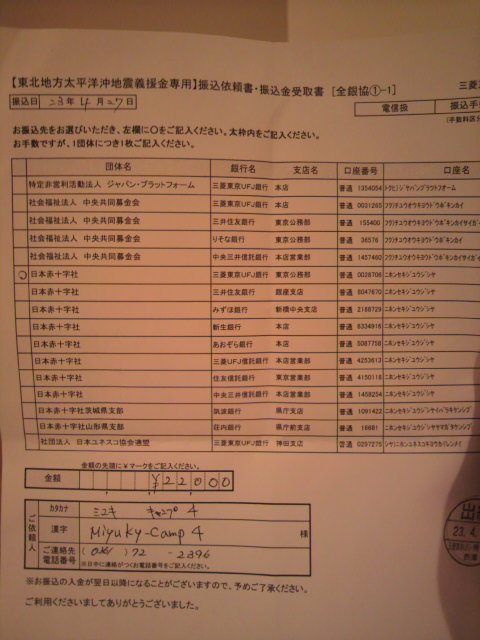 【東北地方太平洋沖地震義援金専用】振込依頼書・振込金受取書 [全銀協①-1] 三菱
振込日 23年 4月 27日
電信扱 振込手
お振込先をお選びいただき、左欄に〇をご記入ください。太枠内をご記入ください。
お手数ですが、1団体につき1枚ご記入ください。
団体名 銀行名 支店名 口座番号 口座名
特定非営利活動法人 ジャパン・プラットフォーム 三菱東京UFJ銀行 本店 普通 1354054 トクヒ)ジャパンプラットフォーム
社会福祉法人 中央共同募金会 三菱東京UFJ銀行 本店 普通 0031263 フク)チュウオウキヨウドウボキンカイ
社会福祉法人 中央共同募金会 三井住友銀行 東京公務部 普通 155400 フク)チュウオウキヨウドウボキンカイサイガイ
社会福祉法人 中央共同募金会 りそな銀行 東京公務部 普通 36576 フク)チュウオウキヨウドウボキンカイ
社会福祉法人 中央共同募金会 中央三井信託銀行 本店営業部 普通 1457460 フク)チュウオウキヨウドウボキンカイサイガイ
〇 日本赤十字社 三菱東京UFJ銀行 本店 普通 0028706 ニホンセキジユウジシヤ
日本赤十字社 三井住友銀行 銀座支店 普通 8047670 ニホンセキジユウジシヤ
日本赤十字社 みずほ銀行 新橋中央支店 普通 2188729 ニホンセキジユウジシヤ
日本赤十字社 新生銀行 本店 普通 6334916 ニホンセキジユウジシヤ
日本赤十字社 あおぞら銀行 本店 普通 5087758 ニホンセキジユウジシヤ
日本赤十字社 三菱UFJ信託銀行 本店営業部 普通 4253613 ニホンセキジユウジシヤ
日本赤十字社 住友信託銀行 東京営業部 普通 4150118 ニホンセキジユウジシヤ
日本赤十字社 中央三井信託銀行 本店営業部 普通 1458254 ニホンセキジユウジシヤ
日本赤十字社茨城県支部 筑波銀行 県庁支店 普通 1091422 ニホンセキジユウジシヤイバラキケンシブ
日本赤十字社山形県支部 荘内銀行 県庁前支店 普通 18681 ニホンセキジユウジシヤヤマガタケンシブ
社団法人 日本ユネスコ協会連盟 三菱東京UFJ銀行 神田支店 普通 0297275 シヤ)ニホンユネスコキヨウカイレンメイ
金額の先頭に￥マークをご記入ください。
金額 ￥22000
ご依頼人
カタカナ ミユキ キャンプ 4
漢字 Miyuky-Camp 4 様
ご連絡先電話番号 ( ) 72 - 2396
※日中に連絡がつくお電話番号をご記入ください。
23.4.
※お振込の入金が翌日以降になることがございますので、予めご了承ください。
ご利用くださいましてありがとうございました。